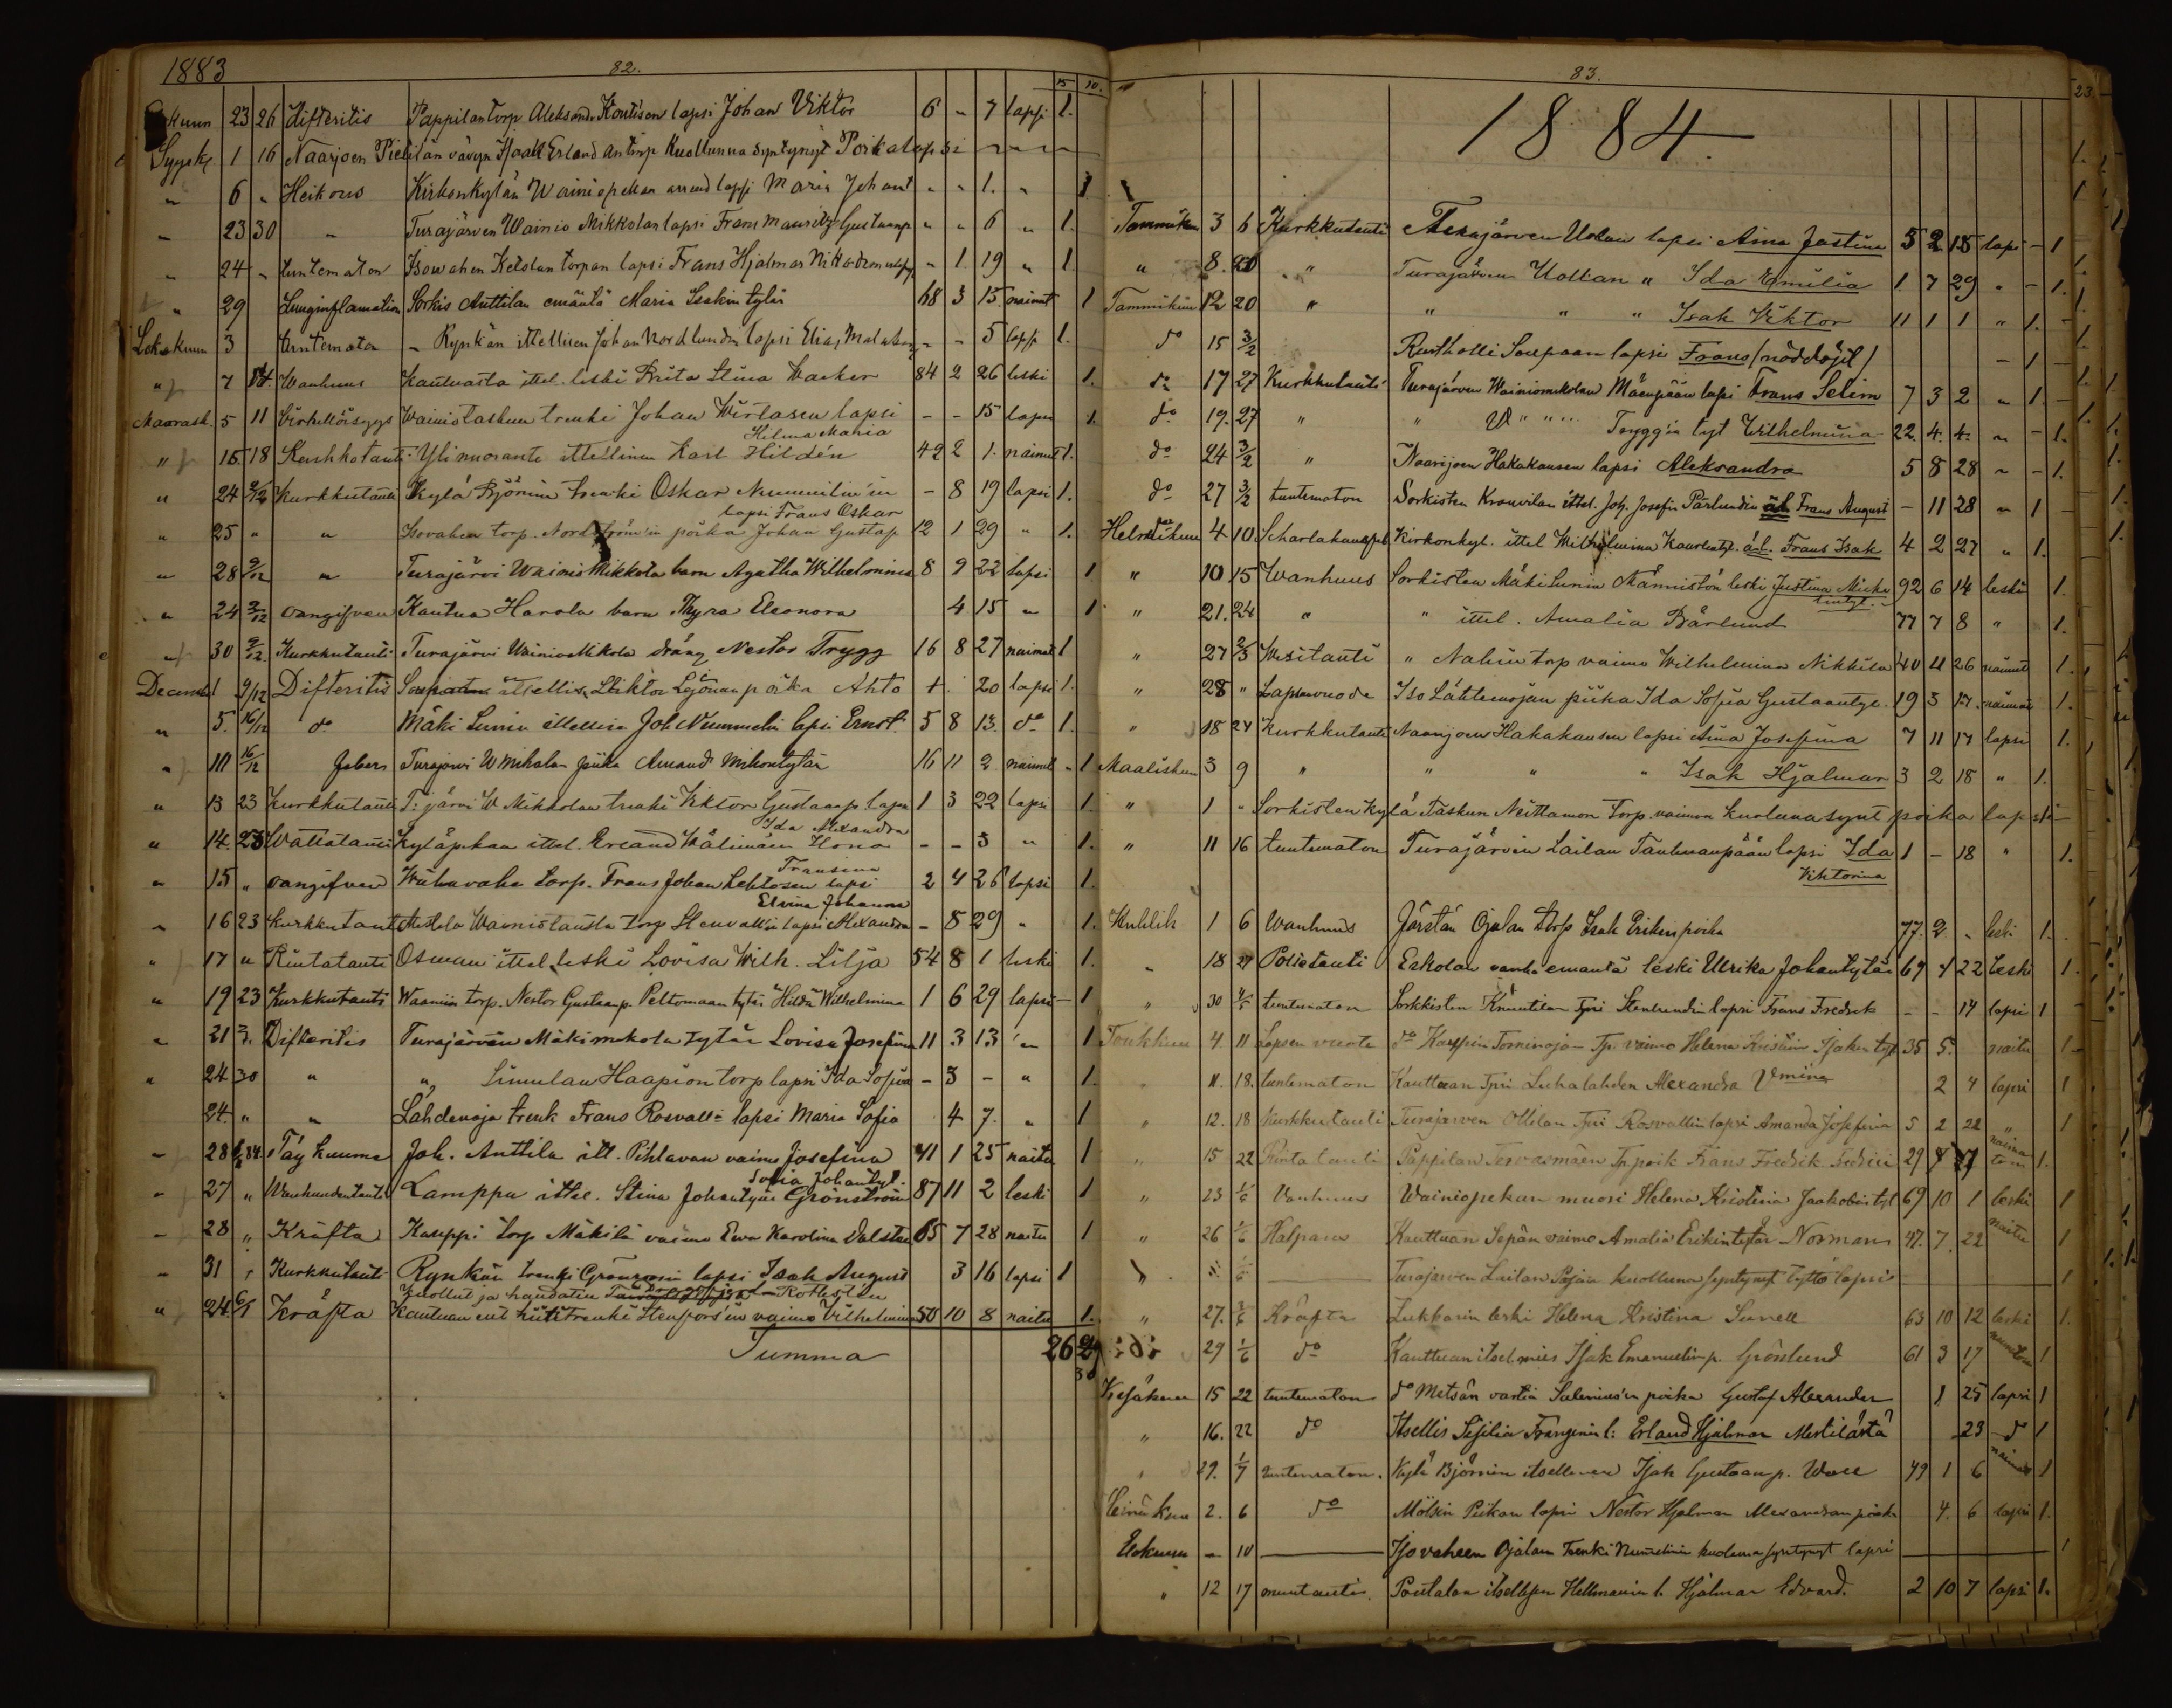 1883 82.
15 10.
kuun 23 26 Difteritis Pappilan torp. Aleksand. Koutisen lapsi Johan Viktor 6 - 7 lapsi 1.
Syysk 1 16 Naarjoen Pietilän vävyn Isaak Erland antorp Kuollunna syntynyt Poikalapsi
" 6 " Heikous Kirkonkylän Wainiopekan lapsi Maria Johant - - 1. " 1
" 23 30 " Turajärven Wainio Mikkolan lapsi Frans Mauritz Gustaanp " " 6 " 1.
" 24 " tuntematon Isowahen Ketolan torpan lapsi Frans Hjalmar " 1. 19 " 1
" 29 Lunginflamation Sorkis Anttilan emäntä Maria Isakin tytär 68 3 15. naimat 1
Lokakuun 3 tuntemata Rynkän ittellisen Johan Nordlundin lapsi Elias - - 5 laps 1.
" 7 14. Wanhuus Kautuasta ittel. leski Brita Stina Wacker 84 2 26 leski 1.
Marrask. 5 11 Wainiotaskun trenki Johan Wirtasen lapsi - - 15 lapsi 1.
Hilma Maria
" 15 18 Keuhkotauti Yli nuorante ittellinen Karl Hildén 49 2 1. naimat 1.
" 24 2/12 Kurkkutauti Kylä Björnin trenki Oskar Nummilin'in - 8 19 lapsi 1.
lapsi Frans Oskar
" 25 " " Isovahen torp. Nordström'in poika Johan Gustap 12 1 29 " 1.
" 28 9/12 " Turajärvi Wainio Mikkola barn Agatha Wilhelmina 8 9 22 lapsi 1
" 24 2/12 oangifven Kautua Harola barn Thyra Eleonora 4 15 " 1
" 30 9/12 Kurkkutauti Turajärvi Wainio Mikola dräng Nestor Trygg 16 8 27 naimat 1
Decemb. 1 9/12 Difteritis ittellis. Poika Ahto 20 lapsi 1.
" 5. 16/12 do. Mäki Sunin ittellisen Joh Nummelin lapsi Ernst. 5 8 13. do 1.
" 10 16/12 febern Turajärvi W Mikola piika Amand Mikontytär 16 11 2 naimat 1
" 13 23 Kurkkutauti T: järvi W Mikkolan trenki Viktor Gustaanp. lapsi 1 3 22 lapsi 1.
Ida Alexandra
" 14. 23 Kyläpekan ittel. Erland Wälimäen Ilona - - 3 " 1.
Fransina
" 15 " oangifven Wähavaha torp. Frans Johan Lehtosen lapsi 2 4 26 lapsi 1.
Elvina Johanna
" 16 23 Kurkkutauti Wainiotausta torp Stenvall'in lapsi Alexandra - 8 29 " 1.
" 17 " Rintatauti Osman ittel. leski Lovisa Wilh. Lilja 54 8 1 leski 1.
" 19 23 Kurkkutauti Waanin torp. Nestor Gustaanp. Peltomaan tytär Hilda Wilhelmina 1 6 29 lapsi 1
" 21 Difteritis Turajärven Mäkimikola tytär Lovisa Josefina 11 3 13 " 1
" 24 30 " " Simulan Haapion torp lapsi Ida Sofia - 3 - " 1.
24. " " Lähdenoja trenk Frans Rosvall'i lapsi Maria Sofia 4 7. " 1
" 28 1/6 84 Täykuume Joh. Anttila itt. Pihlavan vaimo Josefina 41 1 25 naitu 1
Sofia Johantyt.
" 27 " Wanhuudentauti Lamppu ittel. Stina Johantytär Grönström 87 11 2 leski 1
" 28 " Kräfta Kauppi torp Mäkilä vaimo Eva Karolina Dalsten 65 7 28 naitu 1
" 31 " Kurkkutauti Rynkän trenki Grönroosin lapsi Isak August 3 16 lapsi 1
Kuollut ja haudattu
" 24. 6/1 Kräfta Kautuan ent trenki Stenfors'in vaimo Vilhelmina 50 10 8 naitu 1.
Summa 26 29
30
83. 23.
1884.
Tammikuu 3 6 Kurkkutauti lapsi Aina Justina 5 2 15 lapsi - 1
" 8. 20 " Turajärven Uotilan " Ida Emilia 1 7 29 " - 1.
Tammikuu 12 20 " " " " Isak Viktor 11 1 1 " 1. -
do 15 3/2 Rustholli Soupaan lapsi Frans (nöddöpt) - 1
do 17 27 Kurkkutauti Turajärven Wainiomikolan Mäenpään lapsi Frans Selim 7 3 2 " 1. -
do 19. 27 " " W " " Tryggin tyt Wilhelmina 22. 4. 4. " - 1.
do 24 3/2 " Naarijoen Hakakausen lapsi Aleksandra 5 8 28 " - 1.
do 27 3/2 tuntematon Sorkisten Krouvilan ittel. Joh. Josefin Pärlundin äl. Frans August - 11 28 " 1 -
Helmikuu 4 10 Scharlakansfeb Kirkonkyl. ittel Wilhelmina Kaarlentyt. äl. Frans Isak 4 2 27 " 1.
" 10 15 Wanhuus Sorkisten Mäki Sunin Männistön leski Justina Micke 92 6 14 leski 1.
" 21. 24 " " ittel. Amalia Bärlund 77 7 8 " 1.
" 27 2/3 Wesitauti " Nahin torp vaimo Wilhelmina Nikkilä 40 11 26 naimat 1.
" 28 " Lapsenvuode Iso Lähteenojan piika Ida Sofia Gustaantyt. 19 3 17. naimat 1.
" 18 24 Kurkkutauti Naarijoen Hakakausen lapsi Aina Josefina 7 11 17 lapsi 1.
Maaliskuu 3 9 " " " " Isak Hjalmar 3 2 18 " 1.
" 1 " Sorkisten kylä Taskun Niittamon Torp. vaimon kuolluna synt poika lapsi
" 11 16 tuntematon Turajärven Lailan Tauhuanpään lapsi Ida 1 - 18 " 1.
Viktorina
Huhtik 1 6 Wanhuus Järstän Ojalan torp Isak Erikinpoika 77. 2 " leski 1.
" 18 27 Poltetauti Eskolan vanha emäntä leski Ulrika Johantytär 69 4 22 Leski 1.
" 30 4/5 tuntematon Sorkkisten Knuutilan Tpri Stenlundin lapsi Frans Fredrik - - 14 lapsi 1
Toukkuu 4 11 Lapsen vuote do Kauppin Torninoja Tp. vaimo Helena Kristina Isakin tyt 35 5. naitu 1
" 11. 18. tuntematon Kauttuan Tpri Alexandra Vmina 2 4 lapsi 1
" 12. 18 Kurkkutauti Turajarven Ollilan Tpri Rosvallin lapsi Amanda Josefina 5 2 22 " 1
" 15 22 Rintatauti Pappilan Tervasmäen Tp. poik Frans Fredrik 29 naimaton 1.
" 23 1/6 Vanhuus Wainiopekan muori Helena Kristina Jaakobin tyt 69 10 1 leski 1
" 26 1/6 Halpaus Kauttuan Sepän vaimo Amalia Erikintytär Norman 47. 7. 22 naitu 1
Turajarven Lailan kuolluna syntynyt tyttö lapsi 1
" 27. Kräfta Lukkarin leski Helena Kristina Sunell 63 10 12 leski 1.
29 1/6 do Kauttuan itsel. mies Isak Emanuelin p. Grönlund 61 3 17 1
Kesäkuu 15 22 tuntematon do Metsän vartia Salenius'en poika Gustaf Alexander 1 25 lapsi 1
" 16. 22 do Itsellis Sesilia Fransinin l: Erland Hjalmar Mestilästä 23 do 1
" 29. 1/7 tuntematon. Kylä Björnin itsellinen Isak Gustaanp. Wall 49 1 6 naimat 1
Heinäkuu 2. 6 do Mölsin Piikan lapsi Nestor Hjalmar Alexandran poika 4. 6 lapsi 1.
Elokuun - 10 Isovaheen Ojalan Trenki Nummelinin kuolluna syntynyt lapsi 1
" 12 17 Poutalan itsellisen Hellmanin l. Hjalmar Edvard. 2 10 7 lapsi 1.